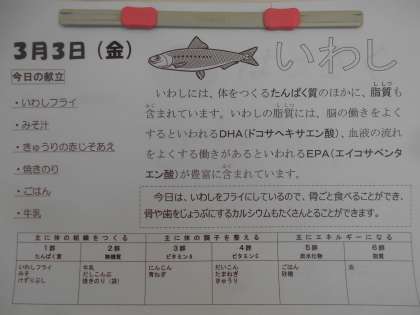 3月3日（金）
いわし
今日の献立
・いわしフライ
・みそ汁
・きゅうりの赤じそあえ
・焼きのり
・ごはん
・牛乳
いわしには、体をつくるたんぱく質のほかに、脂質も
含まれています。いわしの脂質には、脳の働きをよく
するといわれるDHA（ドコサヘキサエン酸）、血液の流れ
をよくする働きがあるといわれるEPA（エイコサペンタ
エン酸）が豊富に含まれています。
今日は、いわしをフライにしているので、骨ごと食べることができ、
骨や歯をじょうぶにするカルシウムもたくさんとることができます。
主に体の組織をつくる 主に体の調子を整える 主にエネルギーになる
1群 2群 3群 4群 5群 6群
たんぱく質 無機質 ビタミンA ビタミンC 炭水化物 脂質
いわしフライ 牛乳 にんじん だいこん ごはん 油
みそ だしこんぶ 青ねぎ たまねぎ 砂糖
けずりぶし 焼きのり（袋） きゅうり